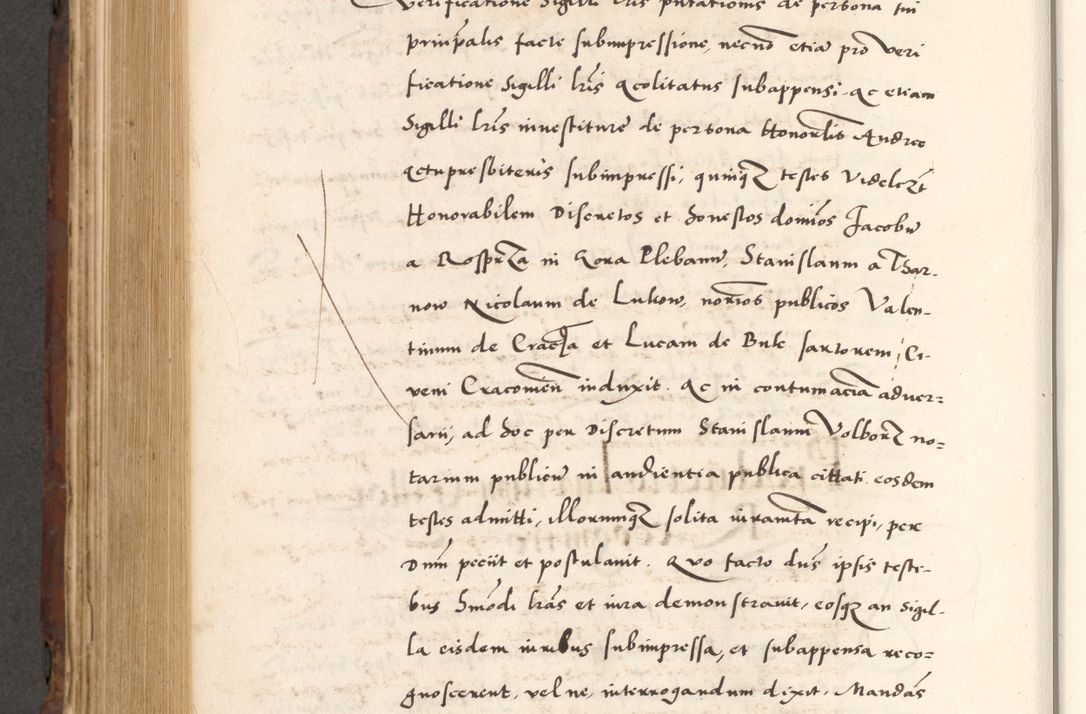 verificatione Sigilli lris putationis de persona sui
prinpalis facte subimpressione, necno etia pro veri
ficatione Sigilli lris acolitatus subappensi ac etiam
Sigilli lris investiture de persona Honorlis Andree
actu presbiteris subimpressi, quinqz testes Videlczt
Honorabilem Discretos et honestos dominos Jacobu
a Rosprza in Gora Plebanu, Stanislaum a Thar-
now Nicolaum de Lukow, norios publicos Valen-
tinum de Cracia et Lucam de Bnk sartorem, Ci-
vem Cracovien induxit. Ac in contumacia adver=
sarii, ad hoc per Discretum Stanislaum Volborz no=
tarium publicu in audientia publica cittati eosdem
testes admitti, illorumqz solita iuramta recipi, per
Dnm peciit et postulavit. Quo facto dns ipsis testi-
bus hmodi lras et iura demonstravit, eosqz an sigil-
la eisdem iuribus subimpressa, et subappensa reco=
gnoscerent, vel ne, interrogandum dixit. Mandans